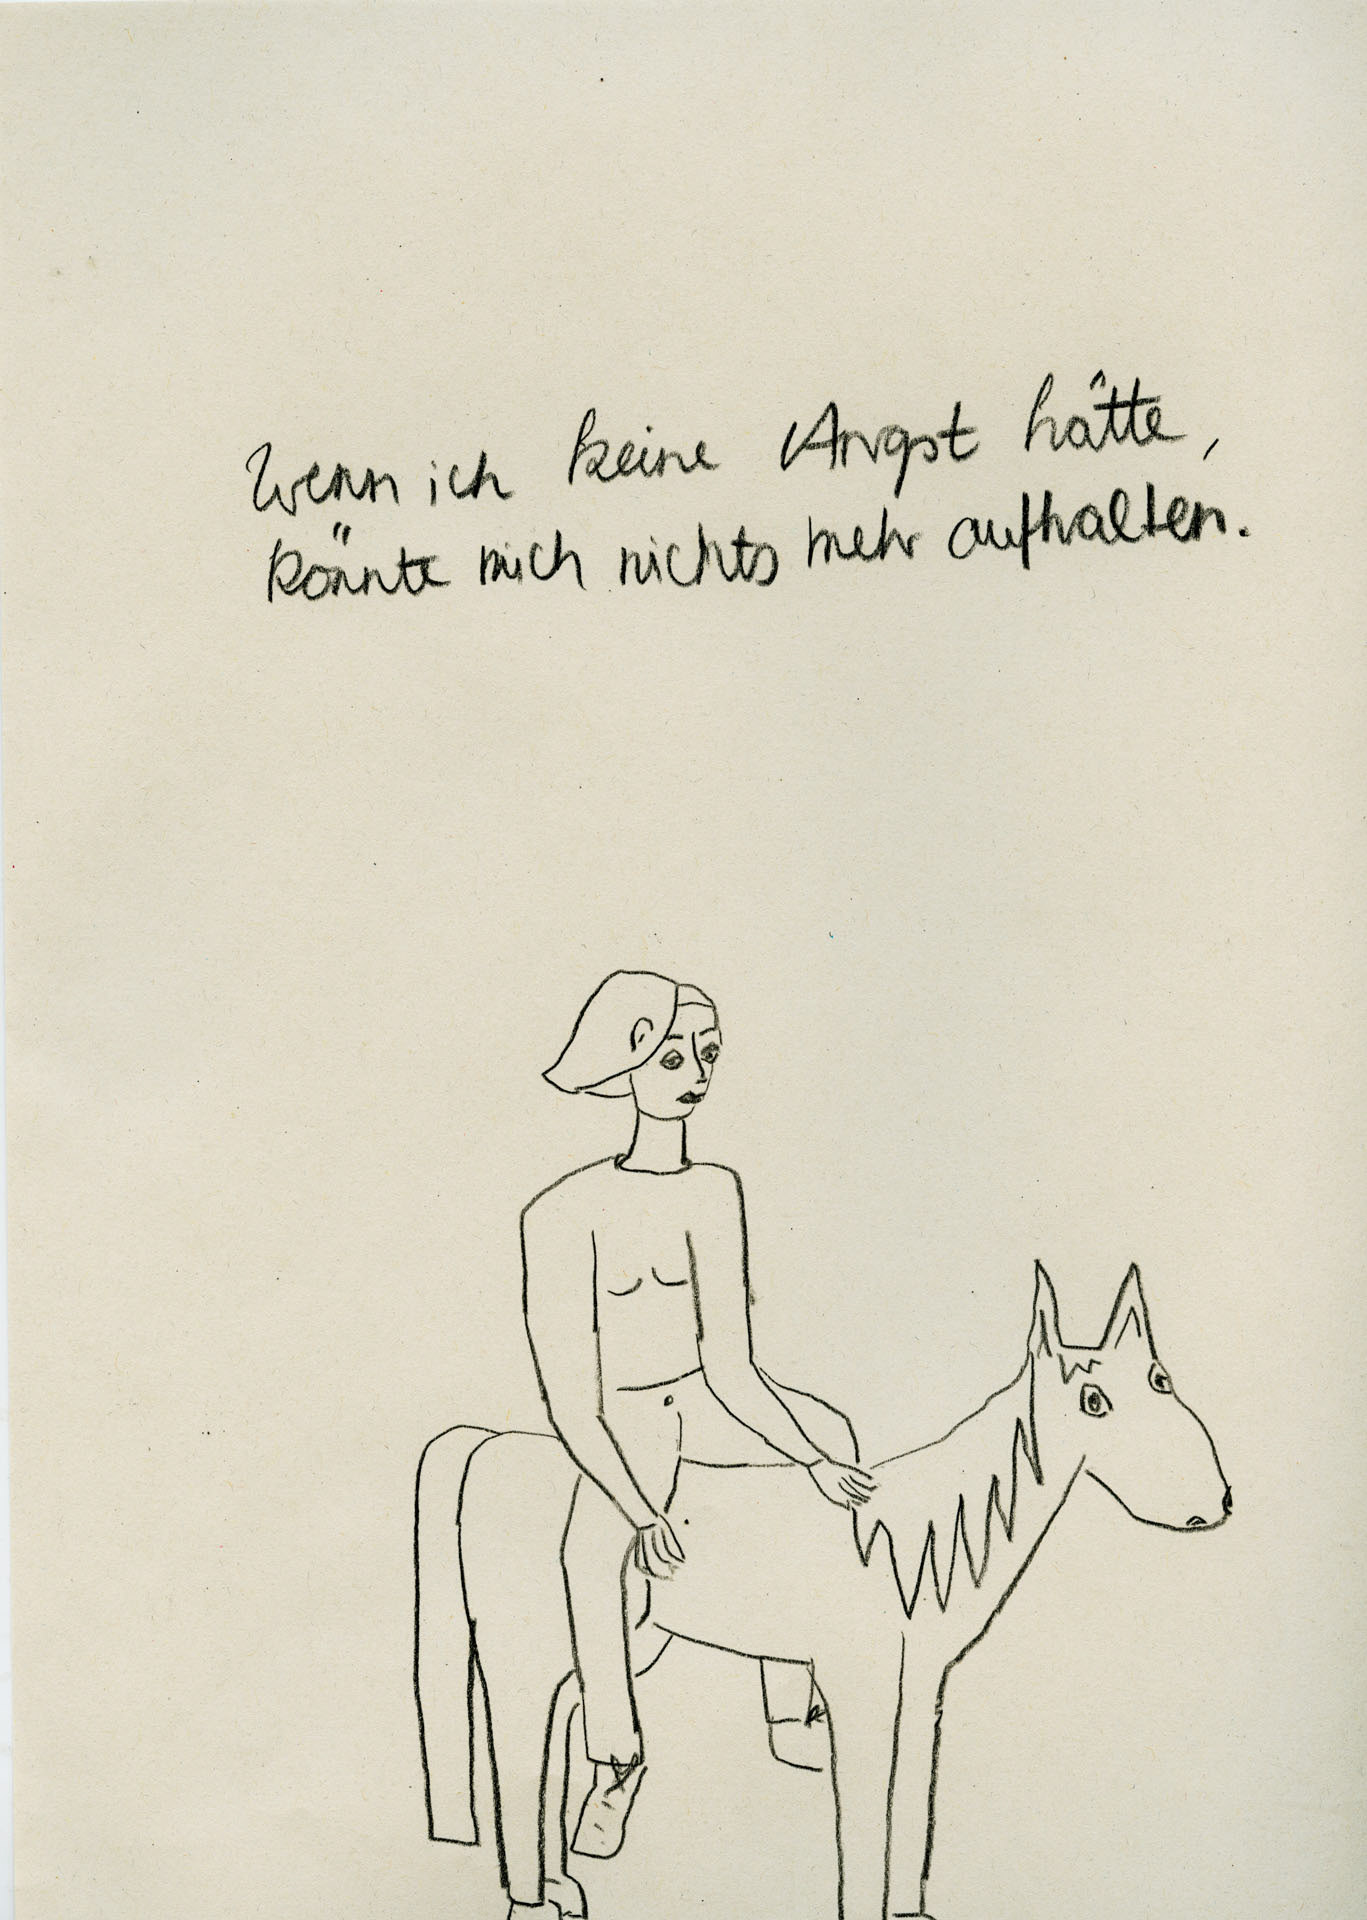 Wenn ich keine Angst hätte,
könnte mich nichts mehr aufhalten.